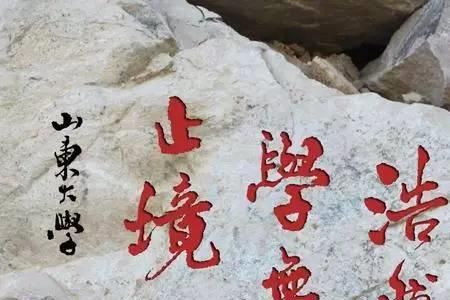 浩
學無
止境
山東大學